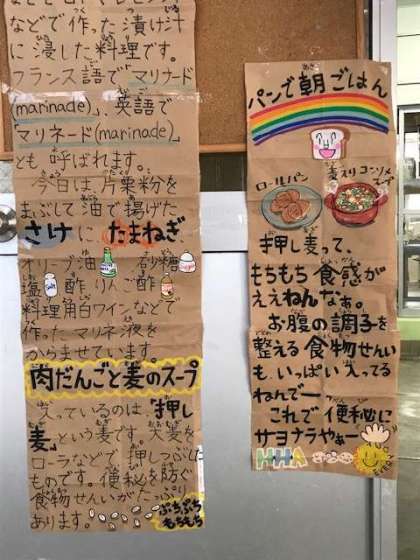 などで作った漬け汁
に浸した料理です。
フランス語でマリナード
(marinade)」、英語で
マリネード(marinade)」
とも呼ばれます。
今日は、片栗粉を
まぶして油で揚げた
さけに たまねぎ
オリーブ油 砂糖
塩 酢 りんご酢
料理角白ワインなどで
作ったマリネ液を
からませています。
肉だんごと麦のスープ
入っているのは「押し
麦」という麦です。大麦を
ローラなどで押しつぶした
ものです。便秘を防ぐ
食物せんいがたっぷり
あります。
ぷちぷち
もちもち
パンで朝ごはん
ロールパン
麦入りコンソメ
押し麦って、
もちもち食感が
ええねんなぁ。
お腹の調子を
整える食物せんい
も、いっぱい入ってる
ねんでー
これで便秘に
サヨナラやぁー